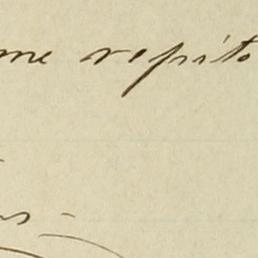 me repito